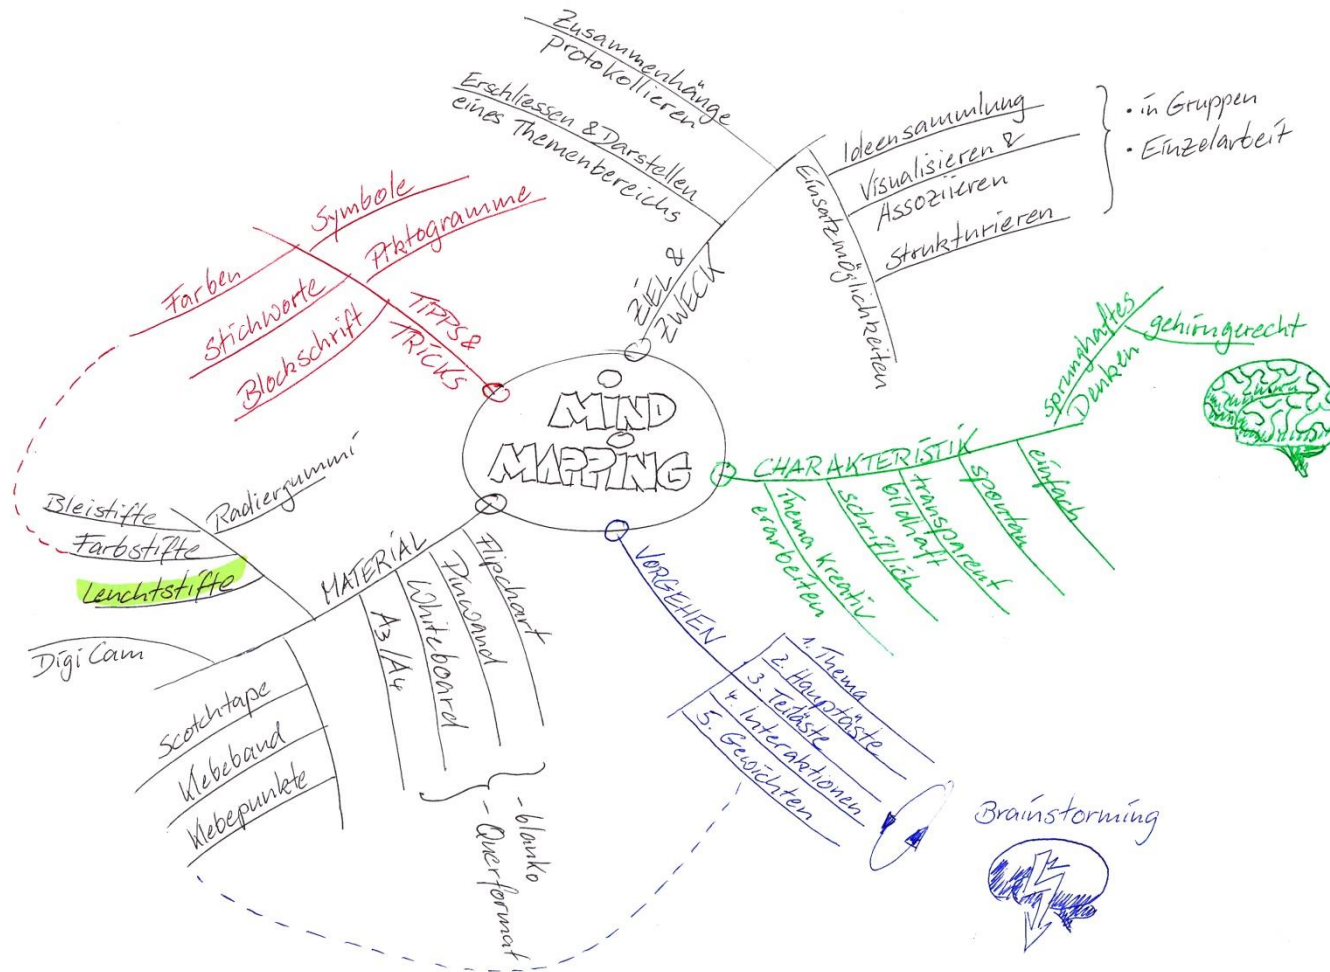 MIND
MAPPING
ZIEL &
ZWECK
Zusammenhänge
protokollieren
Erschliessen & Darstellen
eines Themenbereichs
Einsatzmöglichkeiten
Ideensammlung
Visualisieren &
Assoziieren
Strukturieren
• in Gruppen
• Einzelarbeit
CHARAKTERISTIK
sprunghaftes
Denken
gehirngerecht
einfach
spontan
transparent
bildhaft
schriftlich
Thema kreativ
erarbeiten
VORGEHEN
1. Thema
2. Hauptäste
3. Teiläste
4. Interaktionen
5. Gewichten
Brainstorming
MATERIAL
Flipchart
Pinwand
Whiteboard
A3/A4
- blanko
- Querformat
Radiergummi
Bleistifte
Farbstifte
Leuchtstifte
Digi Cam
Scotchtape
Klebeband
Klebepunkte
TIPPS &
TRICKS
Symbole
Piktogramme
Farben
Stichworte
Blockschrift